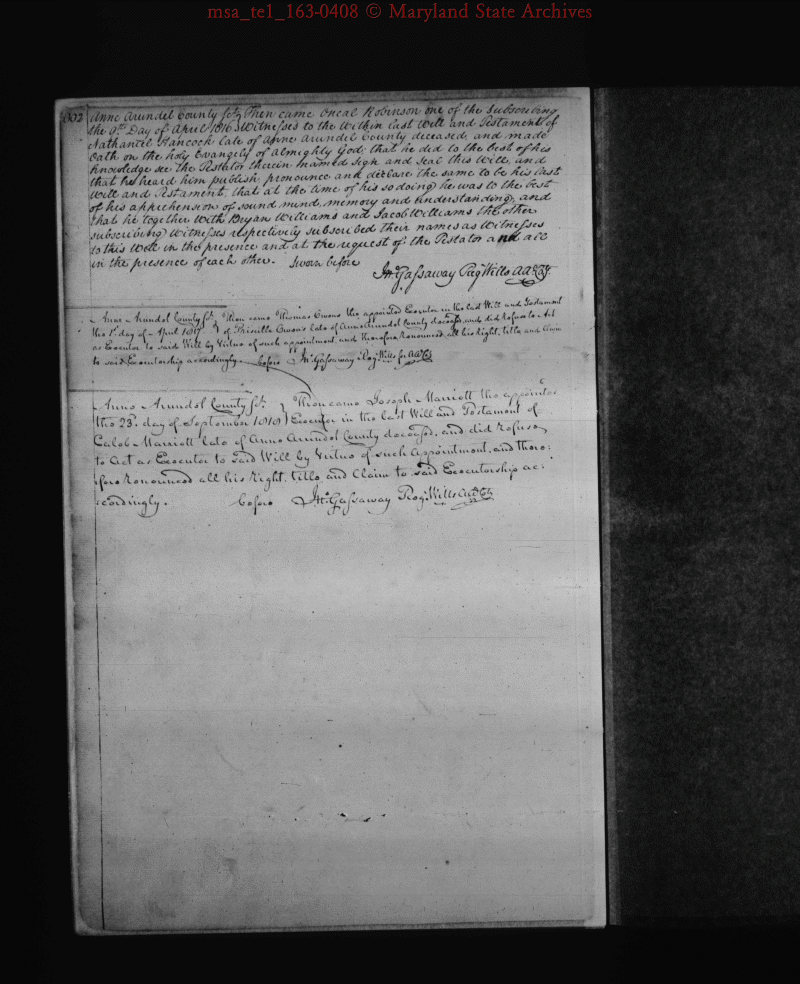 msa_te1_163-0408 © Maryland State Archives
302 Anne Arundel County Sct. Then came Oneal Robinson one of the Subscribing
the 9th Day of April 1816 Witnesses to the Within last Will and Testament of
Nathaniel Hancock late of Anne Arundel County deceased, and made
Oath on the holy Evangely of Almighty God, that he did to the best of his
Knowledge see the Testator therein named sign and seal this Will, and
that he heard him publish, pronounce and declare the same to be his last
Will and Testament, that at the time of his so doing he was to the best
of his apprehension of sound mind, memory and understanding, and
that he together with Bryan Williams and Jacob Williams the other
subscribing Witnesses respectively subscribed their names as Witnesses
to this Will in the presence and at the request of the Testator and all
in the presence of each other. Sworn before
Jno. Gassaway Reg. Wills AA Cty.
Anne Arundel County Sct. Then came Thomas Owens the appointed Executor in the last Will and Testament
the 1st day of April 1817 of Priscilla Owens late of Anne Arundel County deceased, and did Refuse to Act
as Executor to said Will by Virtue of such appointment, and therefore Renounced all his Right, title, and Claim
to said Executorship accordingly. before Jno. Gassaway Reg. Wills for AA Cty
Anne Arundel County Sct. Then came Joseph Marriott the appointed
the 23d. day of September 1818 Executor in the last Will and Testament of
Caleb Marriott late of Anne Arundel County deceased, and did refuse
to Act as Executor to said Will by Virtue of such Appointment, and there:
:fore Renounced all his Right, title, and Claim to said Executorship ac:
:cordingly. before Jno. Gassaway Reg. Wills AA Cty